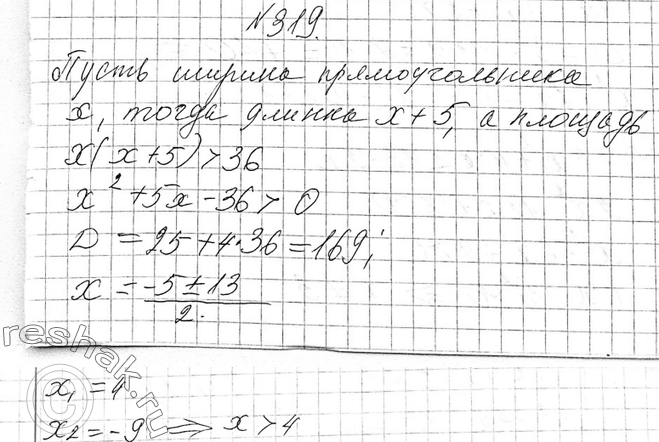 №319.
Пусть ширина прямоугольника
x, тогда длинна x+5, а площадь
x(x+5)>36
x²+5x-36>0
D=25+4·36=169;
x=(-5±13)/2.
x₁=4
x₂=-9 ⇒ x>4
reshak.ru